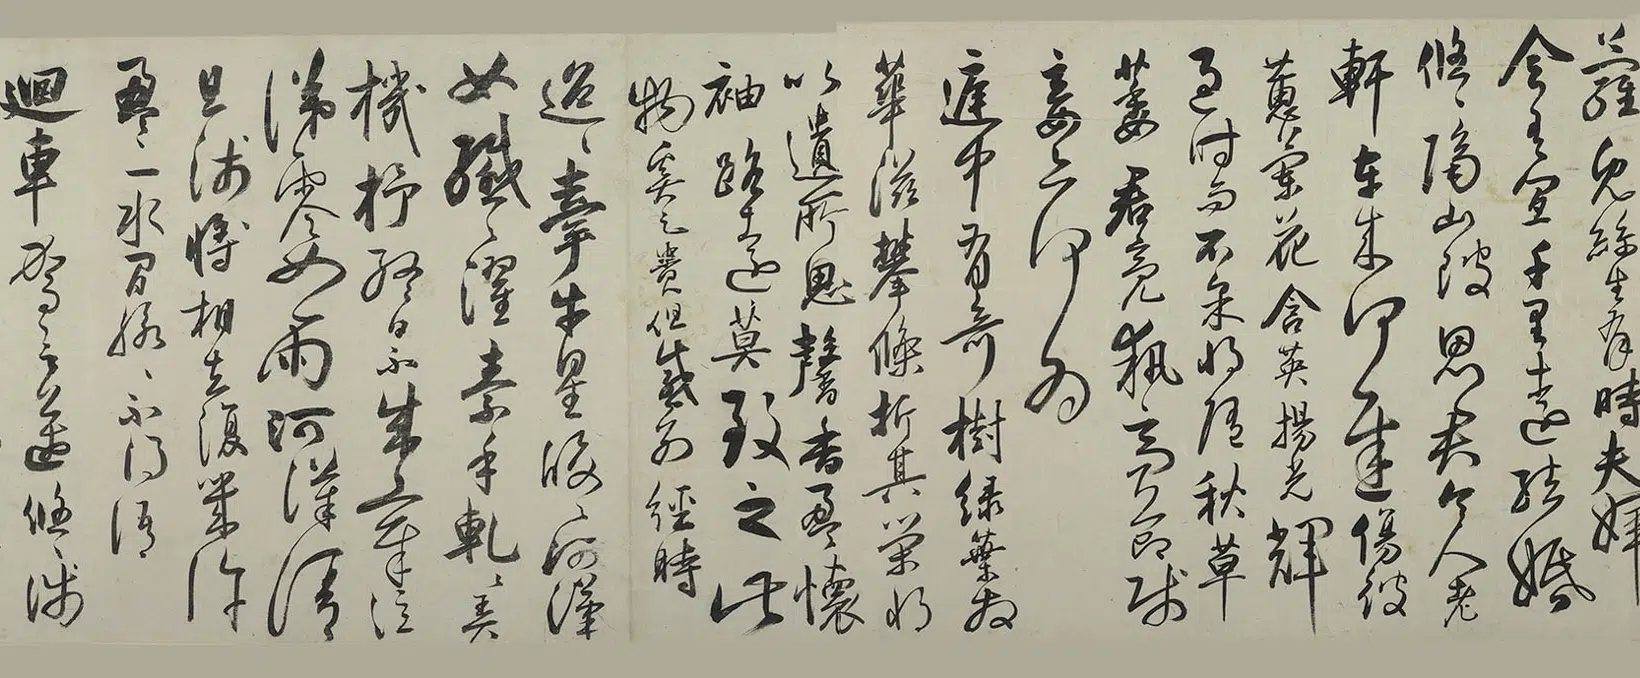 蘿兔絲生有時夫婦
會有宜千里遠結婚
悠〻隔山陂思君令人老
軒車來何遲傷彼
蕙蘭花含英揚光輝
過時而不采將隨秋草
萎君亮執高節賤
妾亦何為
庭中有奇樹綠葉發
華滋攀條折其榮將
以遺所思馨香盈懷
袖路遠莫致之此
物奚足貴但感別經時
迢〻牽牛星皎〻河漢
女纖〻濯素手軋〻弄
機杼終日不成章泣
涕零如雨河漢清
且淺將相去復幾許
盈〻一水間脉〻不得語
迴車駕言邁悠〻涉